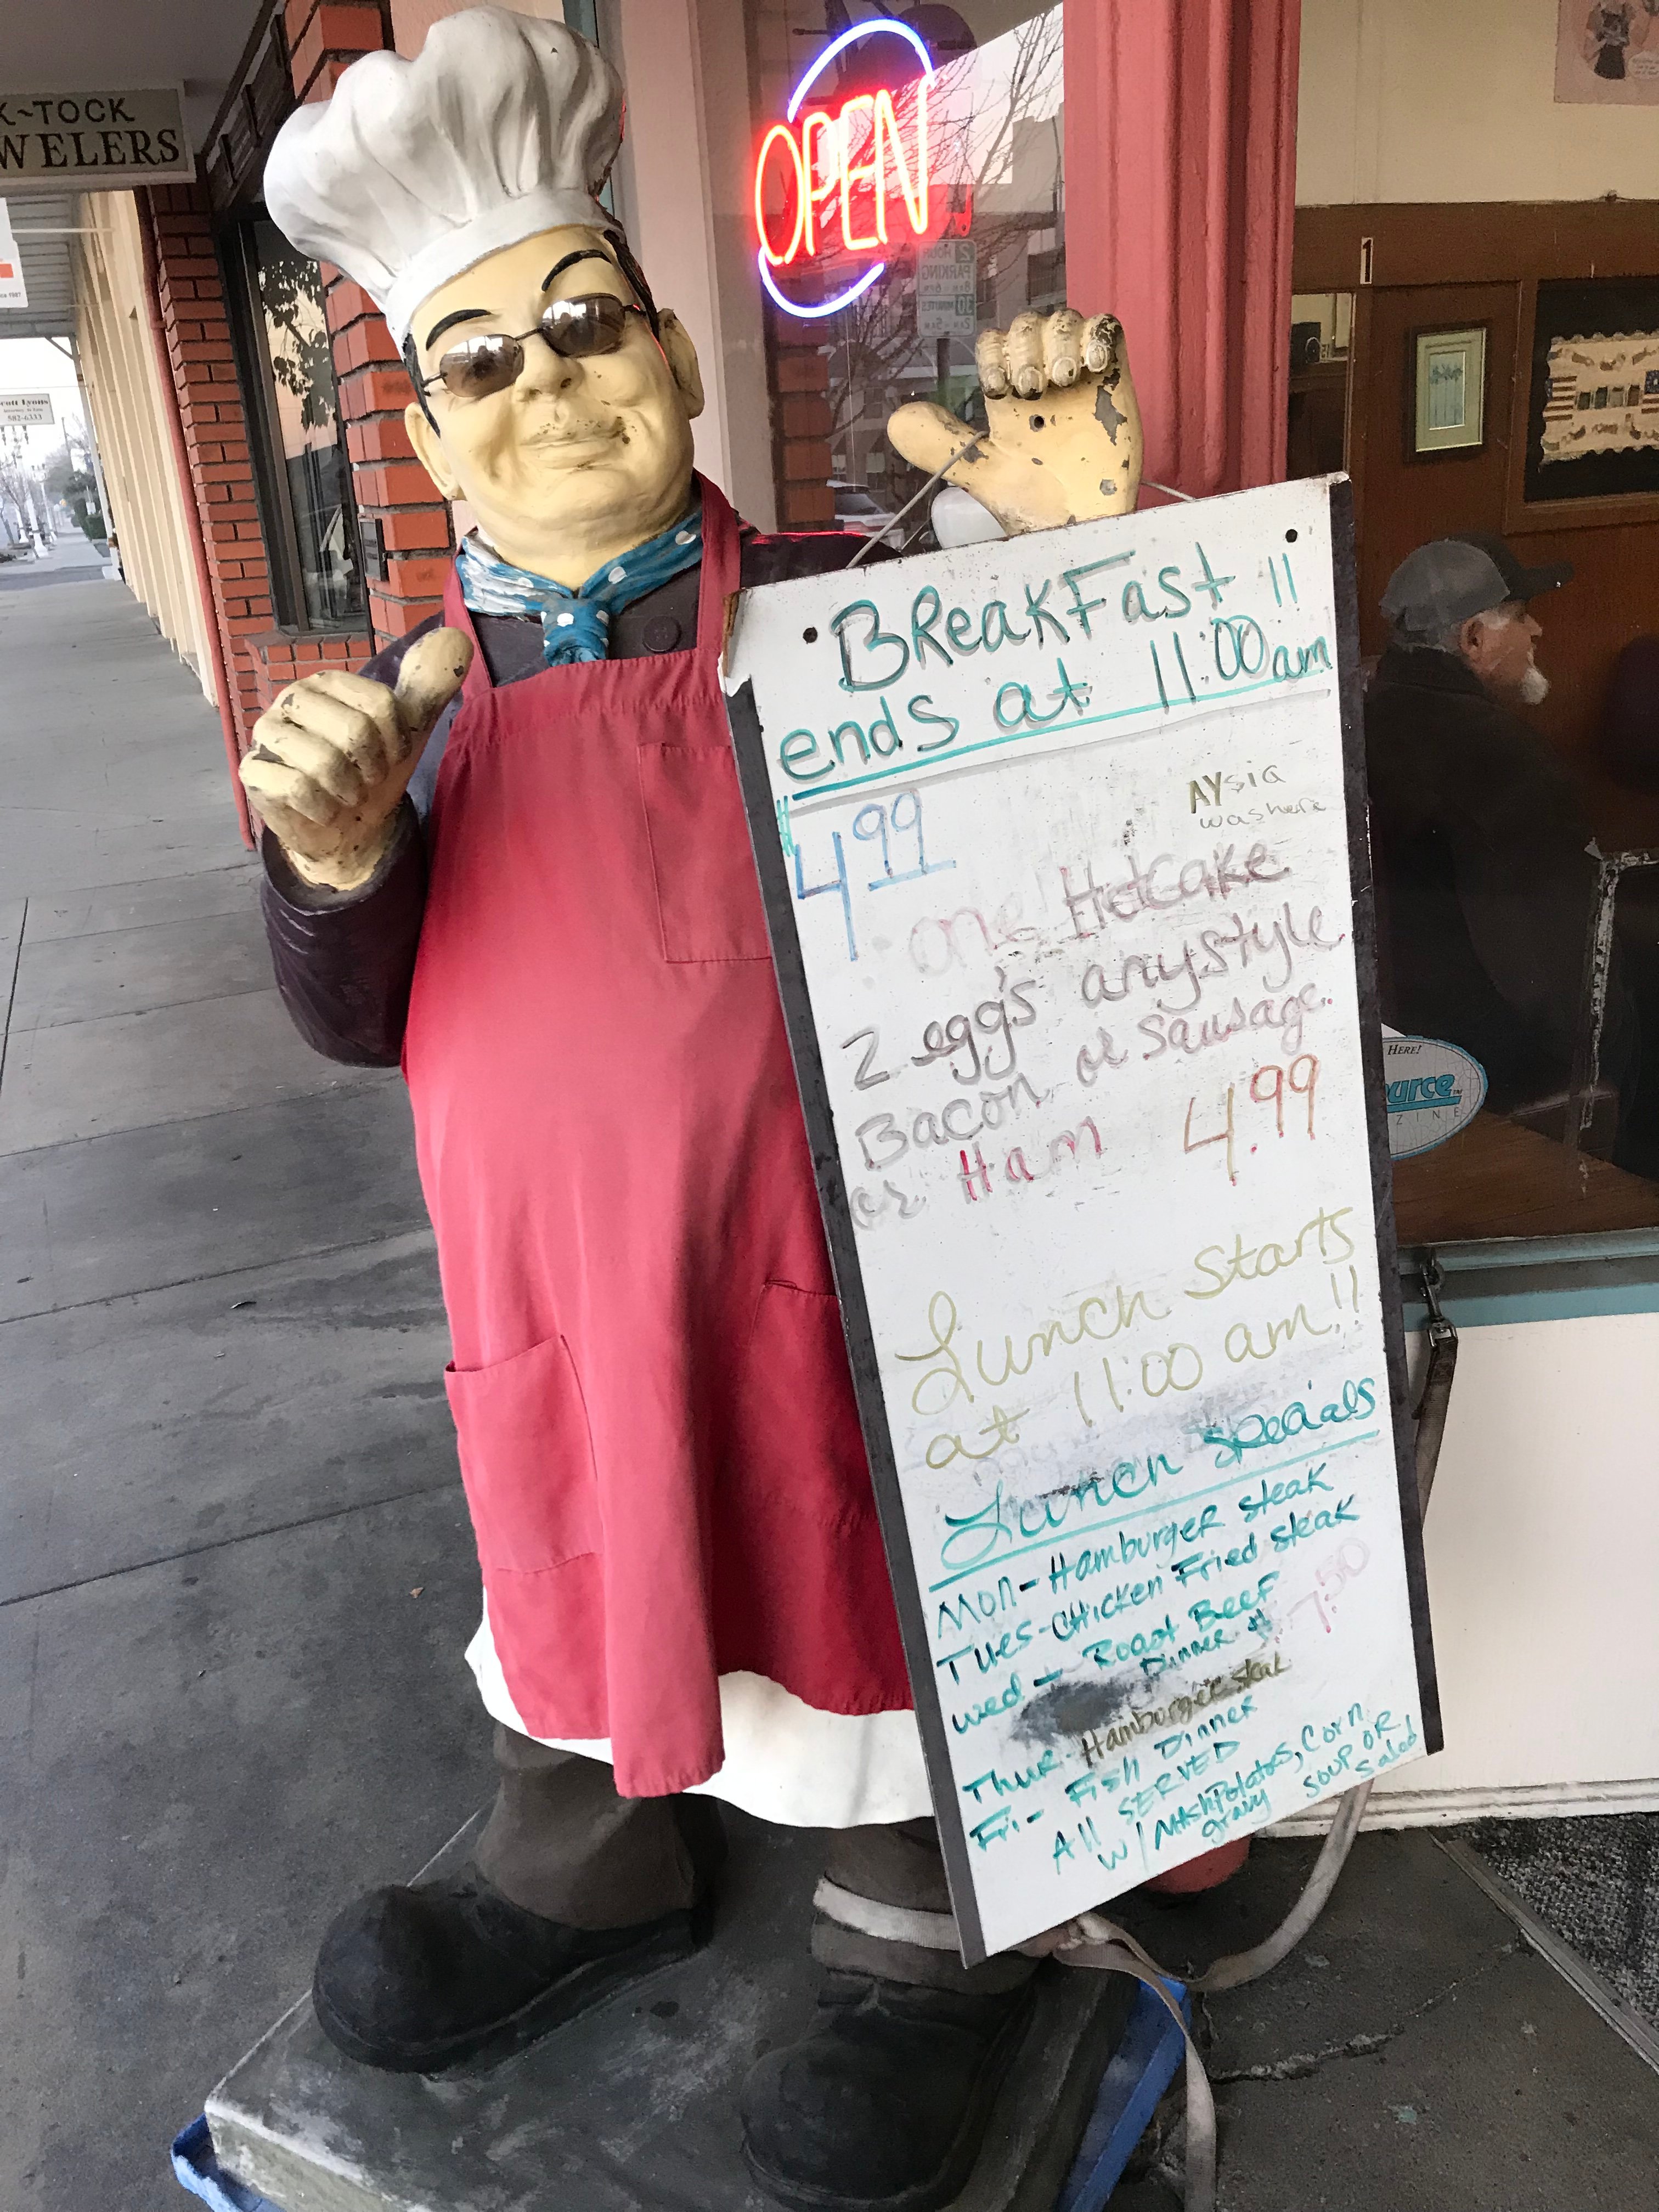 K~TOCK
WELERS
cott Lyons
582-6333
OPEN
2 HOUR
PARKING
1
BReakFast !!
ends at 11:00am
$4.99
AYsia
washere
one HotCake
2 egg's anystyle
Bacon or Sausage.
or Ham 4.99
Lunch Starts
at 11:00 am!!
Lunch Specials
Mon - Hamburger steak
Tues - CHicken Fried steak
wed - Roast Beef
Dinner $7.50
Thur - Hamburger steak
Fri - Fish Dinner
All SERVED
w/ MAshPotatoes, Corn
gravy soup OR
Salad
HERE!
urce
ZINE